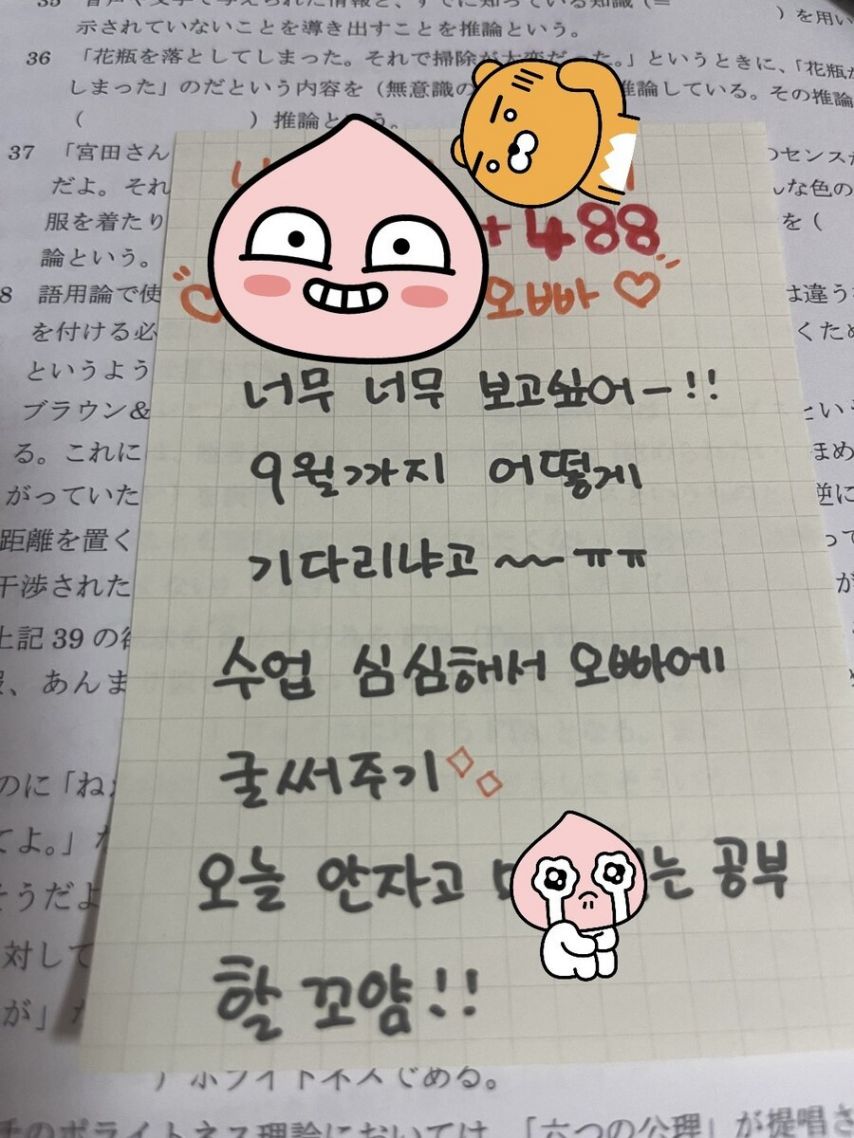 35 音声や文字で与えられた情報と、すでに知っている知識（=
）を用い
示されていないことを導き出すことを推論という。
36 「花瓶を落としてしまった。それで掃除が大変だった。」というときに、「花瓶が
しまった」のだという内容を（無意識の 推論している。その推論
（ ）推論という。
37 「宮田さん のセンスが
だよ。それ んな色の
服を着たり を（
論という。
+488
8 語用論で使 は違う
오빠 ♡
を付ける必 くため
というよう
너무 너무 보고싶어-!!
ブラウン& という
る。これに まめ
9월까지 어떻게
がっていた 逆に
距離を置く って
기다리냐고 ~~ ㅠㅠ
干渉された が
上記 39 の
수업 심심해서 오빠에
、あんま
글써주기
のに「ね
てよ。」
오늘 안자고 는 공부
そうだよ
対して
할 꼬얌!!
が」
）ポライトネスじめる。
のポライトネス理論においては、「六つの公理」が提唱さ